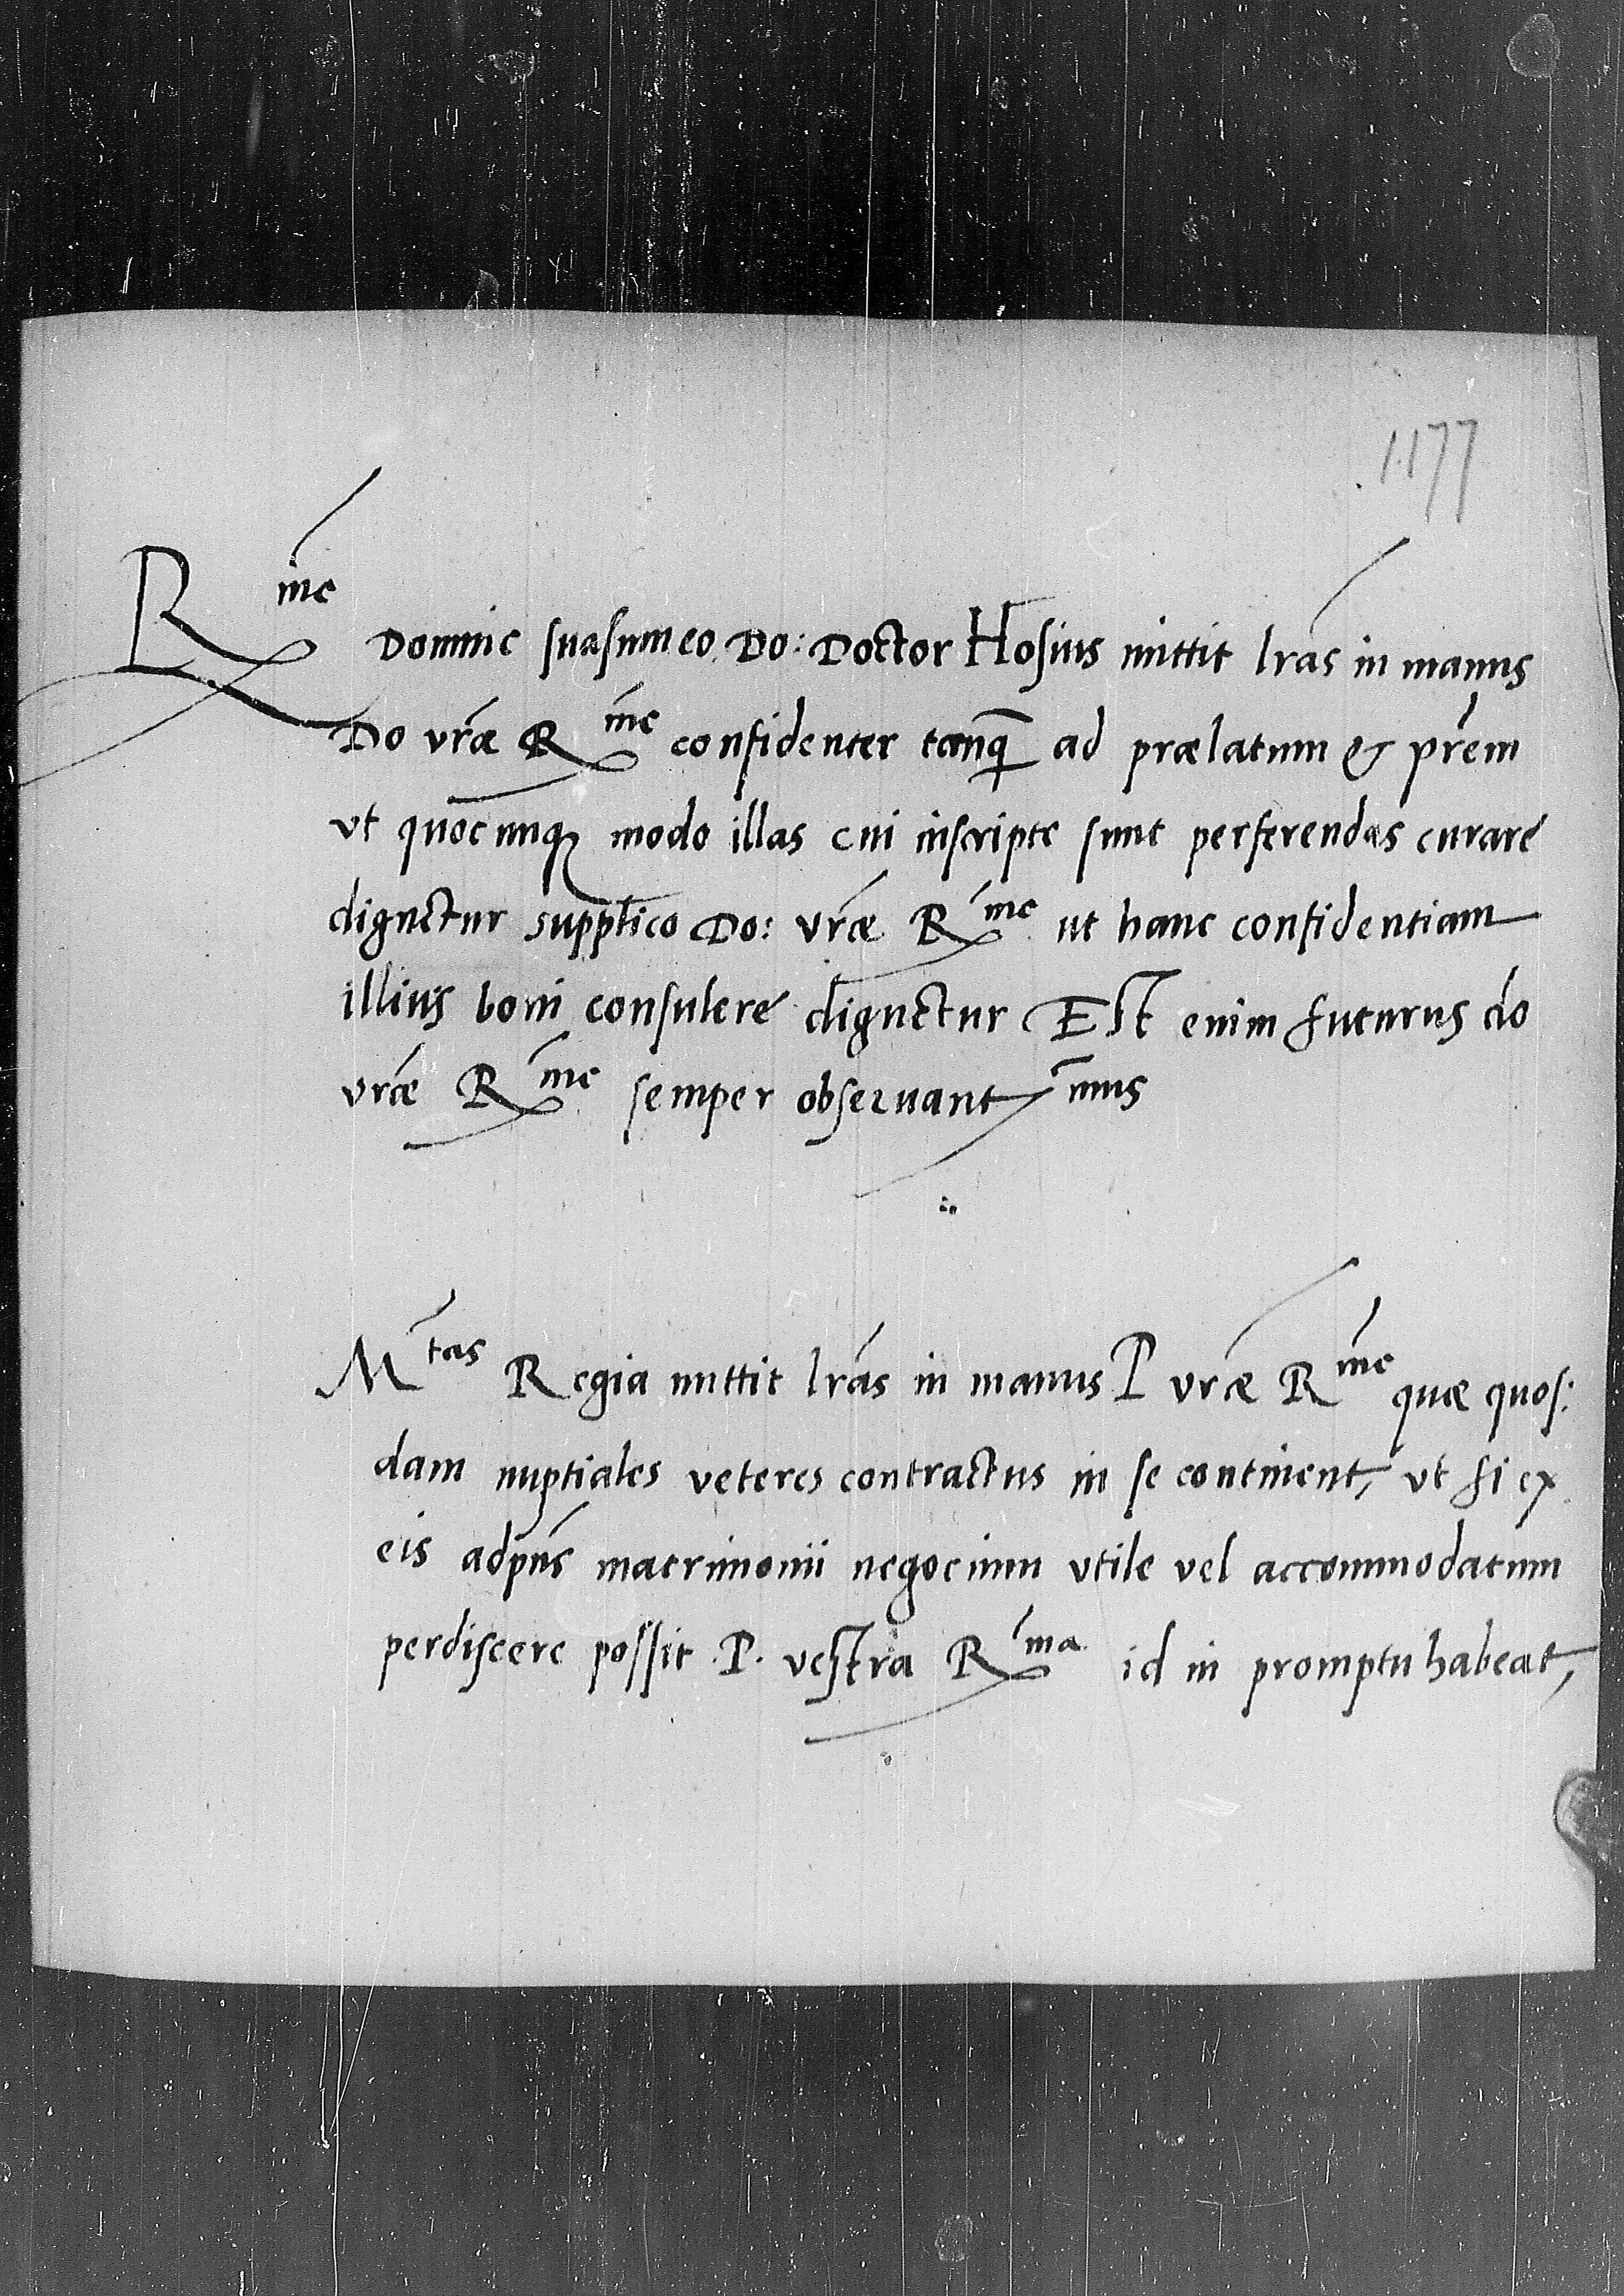 1177
R͞me Domine suasu meo Do: Doctor Hosius mittit lr̃as in manus
Do vr̃ae R͞me confidenter tanq̃ ad praelatum & pr̃em
vt quocunq; modo illas cui inscripte sunt perferendas curare
dignetur supplico Do: vr̃ae R͞me ut hanc confidentiam
illius boni consulere dignetur Est enim futurus do
vr̃ae R͞me semper obseruant͞mus
M͞tas Regia mittit lr̃as in manus P vr̃ae R͞me quae quos:
dam nuptiales veteres contractus in se continent, vt si ex
eis ad pñs matrimonii negocium vtile vel accommodatum
perdiscere possit .P. vestra R͞ma id in promptu habeat,